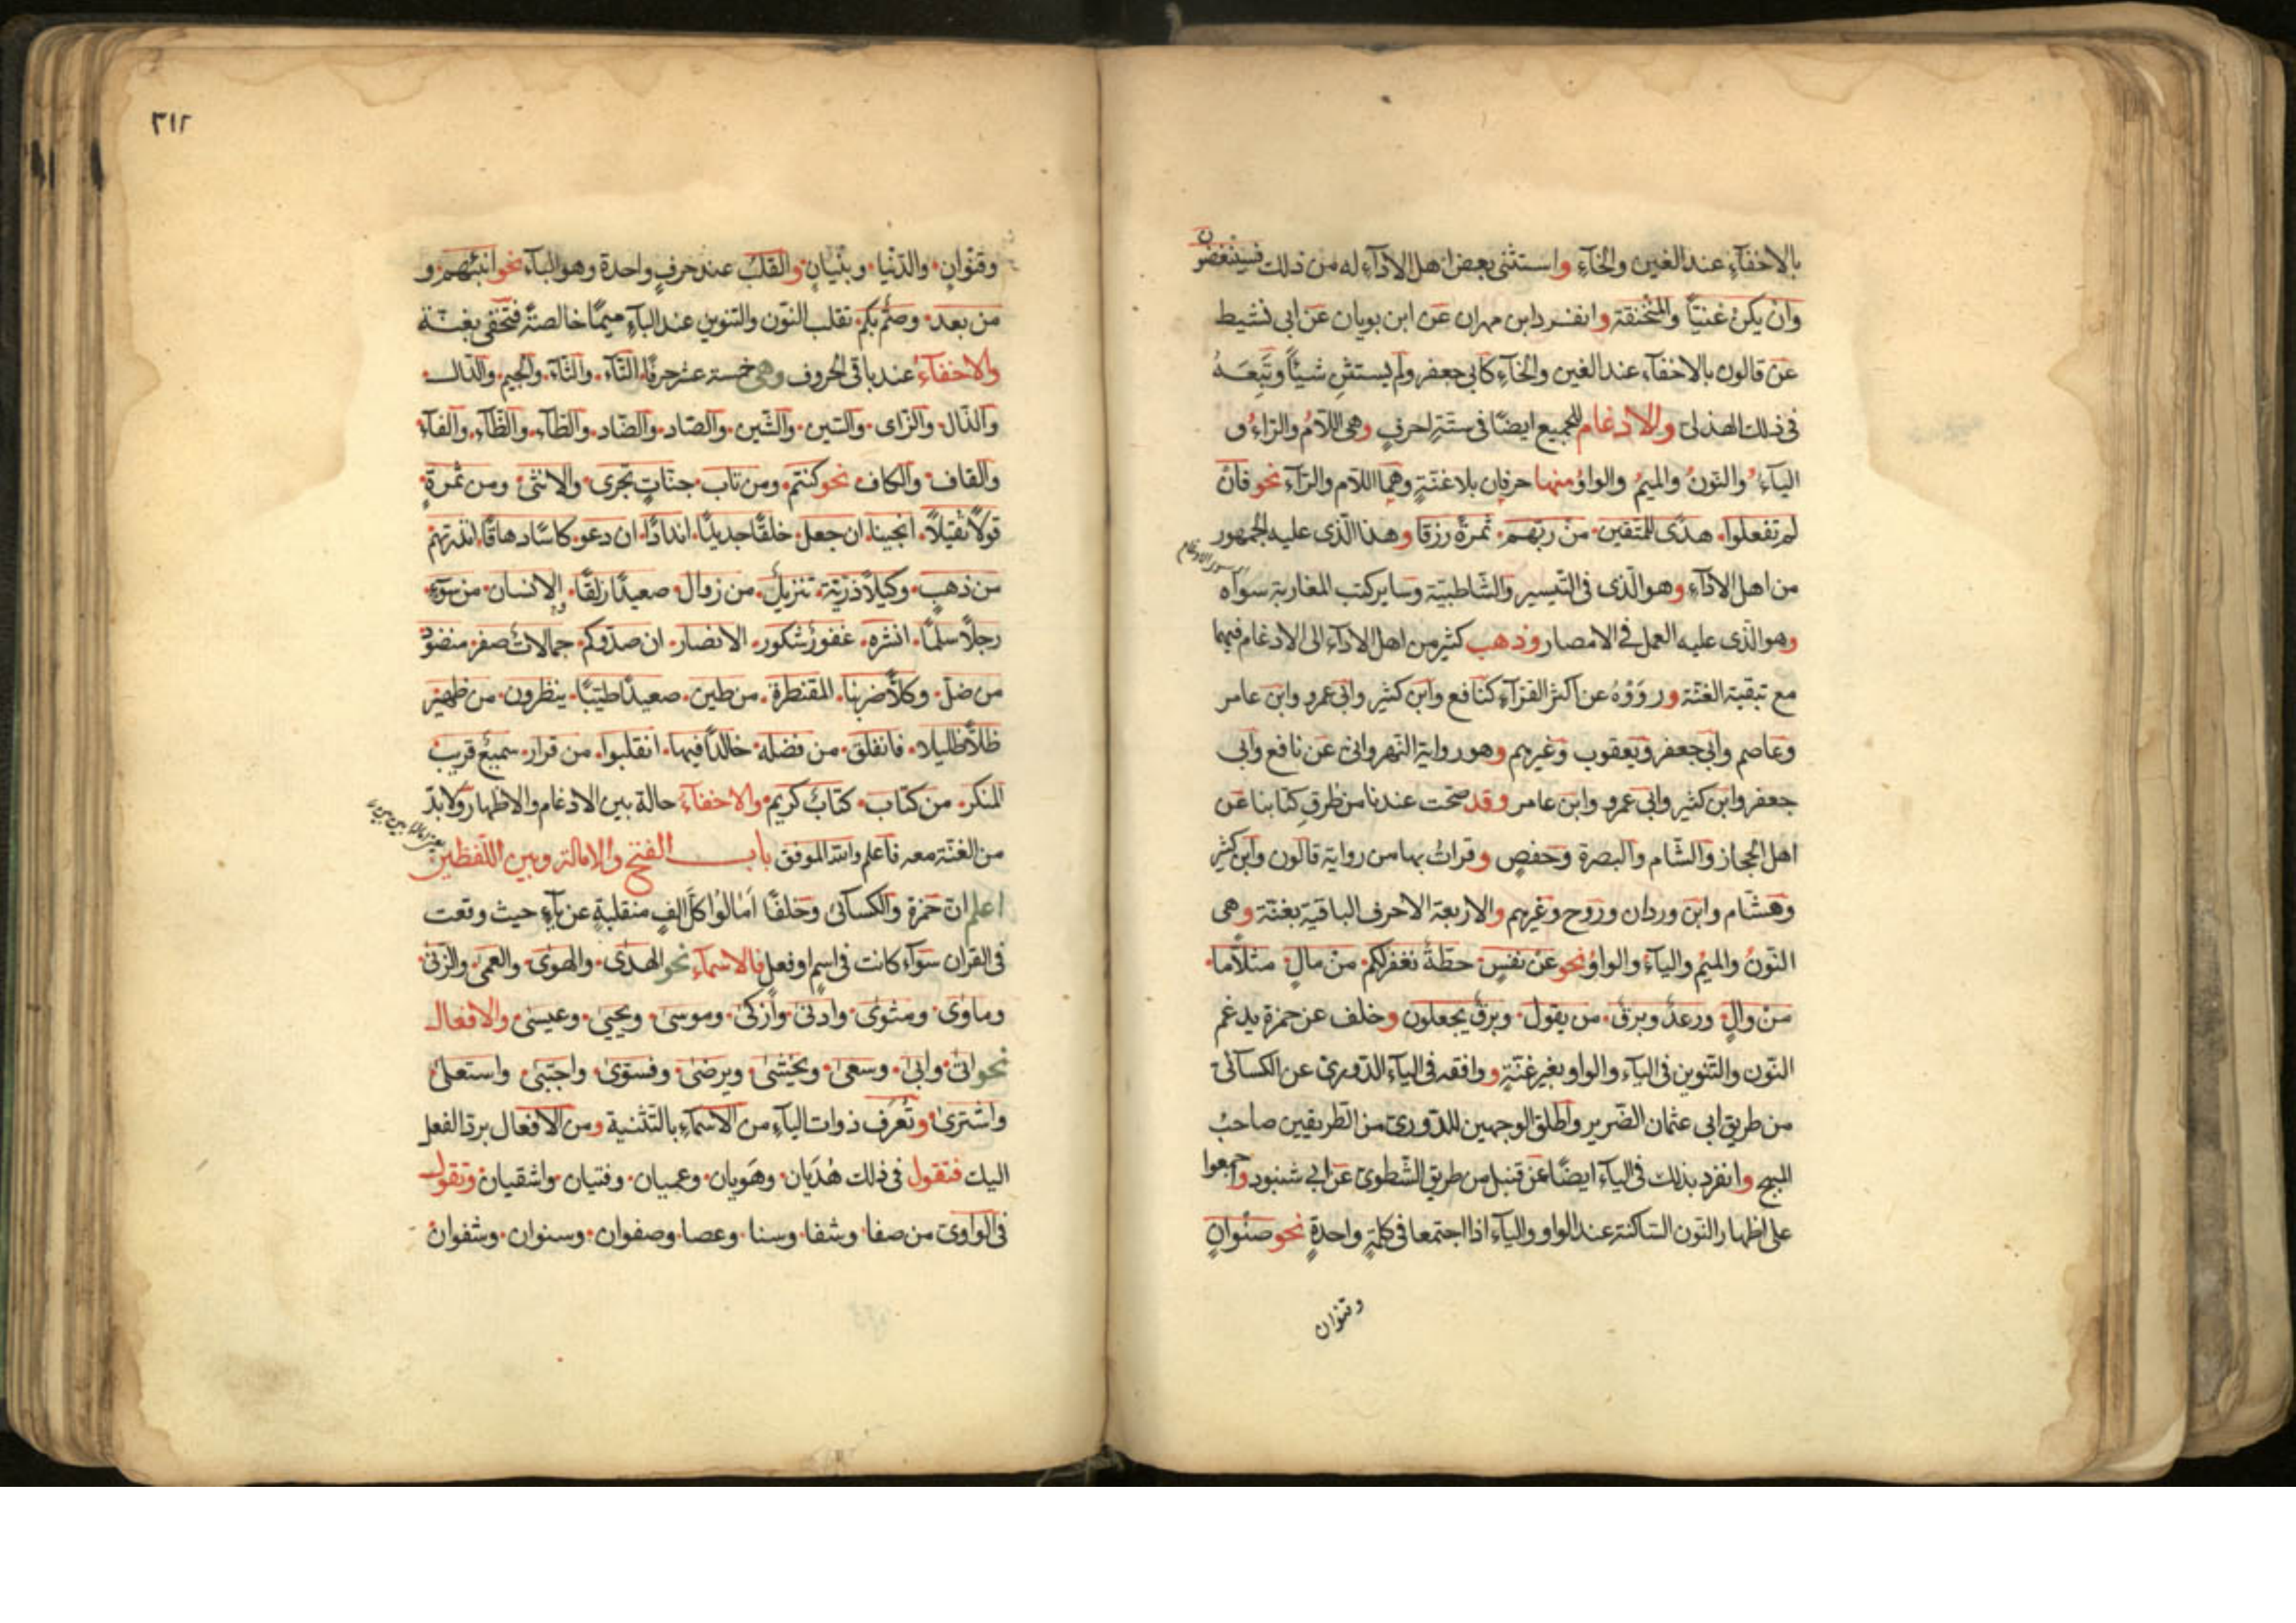 بالاخفآء عند الغين والخآء واستثنى بعض اهل الادآء له من ذلك فسينغضون
وان يكن غنيّا والمنخنقة وانفرد ابن مهران عن ابن بويان عن ابى نشيط
عن قالون بالاخفآء عند الغين والخآء كابى جعفر ولم يستثن شيئًا وتَبِعَهُ
فى ذلك الهذلى والادغام للجميع ايضًا فى ستّةِ احرفٍ وهى اللّامُ والرّاءُ و
اليآءُ والنّونُ والميمُ والواوُ منها حرفان بلا غنّةٍ وهما اللام والرّآء نحو فان
لم تفعلوا هدًى للمتقين من ربّهم ثمرةٍ رزقا وهذا الّذى عليه الجمهور
من اهل الادآء وهو الّذى فى التّيسير والشّاطبيّة وساير كتب المغاربة سواه
وهو الّذى عليه العمل فى الامصار وذهب كثير من اهل الادآء الى الادغام فيهما
مع تبقية الغنّة وروَوْهُ عن اكثر القرّآء كنافع وابن كثير وابى عمرو وابن عامر
وعاصم وابى جعفر ويعقوب وغيرهم وهو رواية النّهروانىّ عن نافع وابى
جعفر وابن كثير وابى عمرو وابن عامر وقد صحّت عندنا من طرق كتابنا عن
اهل الحجاز والشّام والبصرة وحفصٍ وقراتُ بها من رواية قالون وابن كثير
وهشّام وابن وردان وروح وغيرهم والاربعة الاحرف الباقية بغنّة وهى
النّونُ والميمُ واليآءُ والواوُ نحو عن نفسٍ حطّةٌ نغفر لكم من مالٍ مثلًا ما
من والٍ ورعدٌ وبرقٌ من يقول وبرقٌ يجعلون وخلف عن حمزة يدغم
النّون والتّنوين فى اليآء والواو بغير غنّةٍ ووافقه فى اليآء الدّورىّ عن الكسآئىّ
من طريق ابى عثمان الضّرير واطلق الوجهين للدّورىّ من الطّريقين صاحبُ
المبهج وانفرد بذلك فى اليآء ايضًا عن قنبل من طريق الشّطوىّ عن ابى شنبوذ واجمعوا
على اظهار النّون السّاكنة عند الواو واليآء اذا اجتمعا فى كلمةٍ واحدةٍ نحو صنوانٍ
وقنوان
٣١٢
وقنوانٍ والدّنيا وبنيانٍ والقلبُ عند حرفٍ واحدة وهو البآء نحو انبئهم و
من بعد وصمّ بكم تقلب النّون والتنوين عند البآء ميمًا خالصةً فتخفى بغنّة
والاخفآءُ عند باقى الحروف وهى خمسة عشر حرفًا التّآء والثّآء والجيم والدّال
والذّال والزّاى والسّين والشّين والصّاد والضّاد والطّآء والظّآء والفآء
والقاف والكاف نحو كنتم ومن تاب جنّاتٍ تجرى والانثى ومن ثمرةٍ
قولًا ثقيلًا انجينا ان جعل خلقًا جديدًا اندادًا ان دعو كاسًا دهاقًا انذرتهم
من ذهب وكيلًا ذرّيّة تنزيل من زوال صعيدًا زلقًا الانسان من سوء
رجلًا سلمًا انشره غفورٌ شكور الانصار ان صدّوكم جمالاتٌ صفر منضود
من ضلّ وكلًّا ضربنا المقنطرة من طين صعيدًا طيّبًا ينظرون من ظهير
ظلًّا ظليلا فانفلق من فضله خالدًا فيها انقلبوا من قرار سميعٌ قريب
المنكر من كتاب كتابٌ كريم والاخفآء حالة بين الادغام والاظهار ولابدّ
من الغنّة معه فاعلم والله الموفق باب الفتح والامالة وبين اللّفظين
اعلم ان حمزة والكسآئى وخلفًا امالوا كلّ الفٍ منقلبةٍ عن يآءٍ حيث وقعت
فى القران سوآء كانت فى اسمٍ او فعل فالاسمآء نحو الهدى والهوى والعمى والزنى
وماوى ومثوى وادنى وازكى وموسى ويحيى وعيسى والافعال
نحو اتى وابى وسعى ويخشى ويرضى وفسوّى واجتبى واستعلى
واشترى وتُعرَف ذوات اليآء من الاسمآء بالتّثنية ومن الافعال بردّ الفعل
اليك فتقول فى ذلك هُدَيان وهَوَيان وعميان وفتيان واشقيان وتقول
فى الواوىّ من صفا وشفا وسنا وعصا وصفوان وسنوان وشفوان